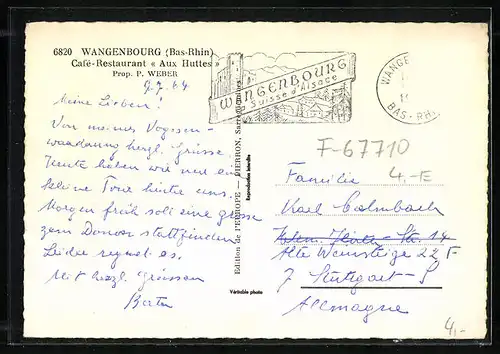 6820 WANGENBOURG (Bas-Rhin)
Café-Restaurant « Aux Huttes »
Prop. P. WEBER
9.7.64
Meine Lieben!
Von meiner Vogesen-
wanderung herzl. Grüsse.
Heute haben wir nur eine
kleine Tour hinter uns.
Morgen früh soll eine grosse
zum Donon stattfinden
Leider regnet es.
Mit herzl. Grüssen
WANGENBOURG
Suisse d'Alsace
WANGEN
BAS-RHIN
Edition de l'EUROPE - PIERRON, Sarreguemines
Reproduction interdite
Véritable photo
F-67710
4,-E
Familie
Karl Calmbach
Str. 14
Alte Weinsteige 22 F
7 Stuttgart-S
Allemagne
4,-